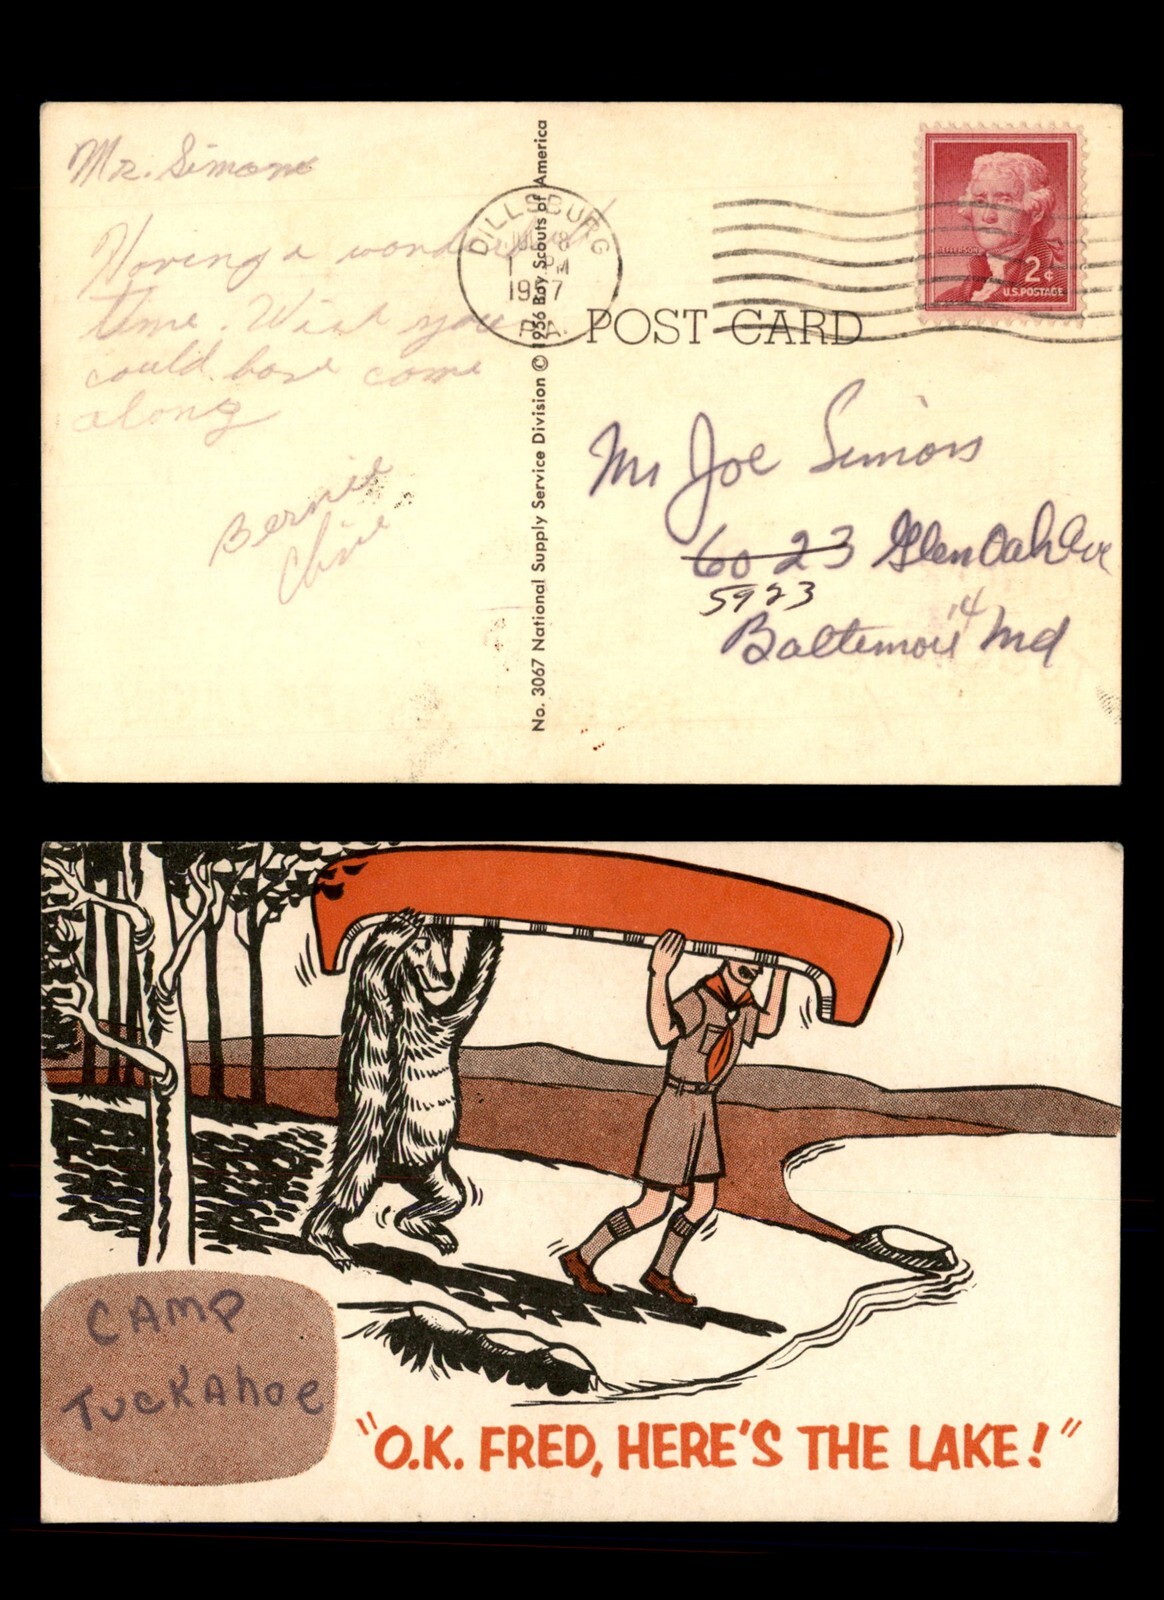 Mr. Simons
Having a wonderful
time. Wish you
could have come
along
Bernie
Cline
No. 3067 National Supply Service Division © 1956 Boy Scouts of America
DILLSBURG
8
1 PM
1957
PA.
JEFFERSON
2¢
U.S. POSTAGE
POST CARD
Mr Joe Simons
6023 Glen Oak Ave
5923
Baltimore 14 Md
CAMP
TUCKAhoe
"O.K. FRED, HERE'S THE LAKE!"